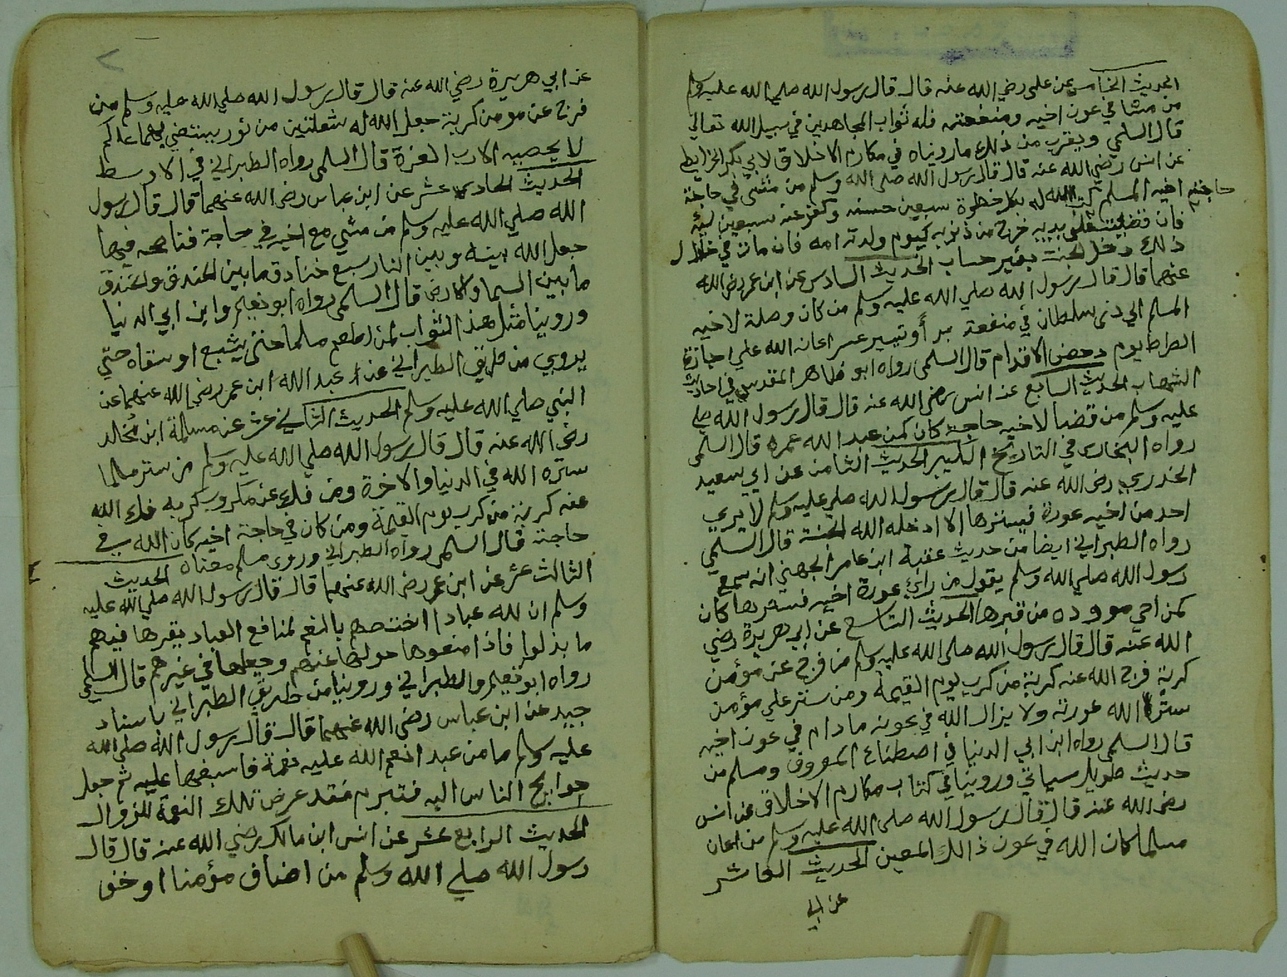 الحديث الخامس عن على رضي الله عنه قال قال رسول الله صلي الله عليه وسلم
من مشا في عون اخيه ومنفعته فله ثواب المجاهدين في سبيل الله تعالي
قال السلمي ويقرب من ذلك ما رويناه في مكارم الاخلاق لابي بكر الخرايطي
عن انس رضي الله عنه قال قال رسول الله صلى الله وسلم من مشى في حاجة
اخيه المسلم كتب الله له بكل خطوة سبعين حسنه وكفر عنه سبعين سيئة
حاجته
فان قضيت علي يديه خرج من ذنوبه كيوم ولدته امه فان مات في خلال
ذلك دخل الجنت بغير حساب الحديث السادس عن ابن عمر رضي الله
عنهما قال قال رسول الله صلي الله عليه وسلم من كان وصلة لاخيه
المسلم الي ذي سلطان في منفعة بر أو تيسير عسر اعانه الله علي اجازة
الصراط يوم دحض الاقدام قال السلمى رواه ابو طاهر المقدسي في احاديث
الشهاب الحديث السابع عن انس رضي الله عنه قال قال رسول الله صلي
عليه وسلم من قضا لاخيه حاجة كان كمن عبد الله عمره قال السلمى
رواه البخارى في التاريخ الكبير الحديث الثامن عن ابي سعيد
الخدري رضى الله عنه قال قال رسول الله صلي عليه وسلم لا يري
احد من اخيه عورة فيسترها الا ادخله الله الجنة قال السلمي
رواه الطبراني ايضا من حديث عقبة ابن عامر الجهني انه سمع
رسول الله صلي الله وسلم يقول من رائ عورة اخيه فسترها كان
كمن احي مووده من قبرها الحديث التاسع عن ابي هريرة رضي
الله عنه قال قال رسول الله صلى الله عليه وسلم من فرج عن مؤمن
كربة فرج الله عنه كربة من كرب يوم القيمة ومن ستر علي مؤمن
ستر الله عورته ولا يزال الله في عونه ما دام في عون اخيه
قال السلمى رواه ابن ابي الدنيا في اصطناع المعروف ومسلم من
حديث طويل سياتي وروينا في كتاب مكارم الاخلاق عن انس
رضى الله عنه قال قال رسول الله صلى الله عليه وسلم من اعان
مسلما كان الله في عون ذالك المعين الحديث العاشر
عن ابي
عن ابي هريرة رضي الله عنه قال قال رسول الله صلي الله عليه وسلم من
فرج عن مومن كربة جعل الله له شعلتين من نور يستضي بهما عالم
لا يحصيه الا رب العزة قال السلمى رواه الطبراني في الاوسط
الحديث الحادي عشر عن ابن عباس رضى الله عنهما قال قال رسول
الله صلي الله عليه وسلم من مشي مع اخيه في حاجة فناصحه فيها
جعل الله بينه وبين النار سبع خنادق ما بين الخندق والخندق
ما بين السما والارض قال السلمى رواه ابو نعيم وابن ابي الدنيا
وروينا مثل هذا الثواب لمن اطعم مسلما حتى يشبع او سقاه حتي
يروي من طريق الطبراني عن عبد الله ابن عمر رضي الله عنهما عن
النبي صلي الله عليه وسلم الحديث الثاني عشر عن مسلمة ابن مخلد
رضي الله عنه قال قال رسول الله صلي الله عليه وسلم من ستر مسلما
ستره الله في الدنيا والاخرة ومن فك عن مكروب كربه فك الله
عنه كربة من كرب يوم القيمة ومن كان في حاجة اخيه كان الله في
حاجته قال السلمى رواه الطبراني وروى مسلم معناه الحديث
الثالث عشر عن ابن عمر رضى الله عنهما قال قال رسول الله صلي الله عليه
وسلم ان لله عبادا اختصهم بالنعم لمنافع العباد يقرها فيهم
ما بذلوا فاذا منعوها حولها عنهم وجعلها في غيرهم قال السلمي
رواه ابو نعيم والطبراني وروينا من طريق الطبراني باسناد
جيد عن ابن عباس رضى الله عنهما قال قال رسول الله صلي الله
عليه وسلم ما من عبد انعم الله عليه نعمة فاسبغها عليه ثم جعل
حوايج الناس اليه فتبرم فقد عرض تلك النعمة للزوال
الحديث الرابع عشر عن انس ابن مالك رضي الله عنه قال قال
رسول الله صلي الله وسلم من اضاف مؤمنا او خق